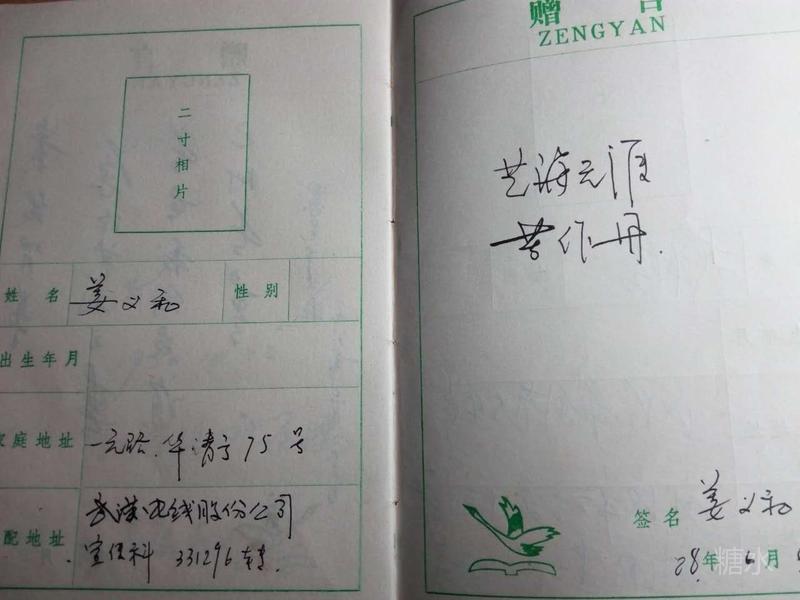 二寸相片
姓名 姜义和 性别
出生年月
家庭地址 一元路.华清街75号
配地址 武汉电线股份公司
宣传科 331296转
赠言
ZENGYAN
艺海无涯
苦作舟.
签名 姜义和
88年6月
糖水